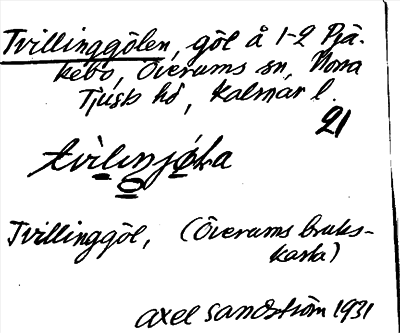 Tvillinggölen, göl å 1-2 Pjä-
kebo, Överums sn, Norra
Tjusts hd, Kalmar l.
21
tvìlinjö́la
Tvillinggöl, (Överums bruks-
karta)
Axel Sandström 1931